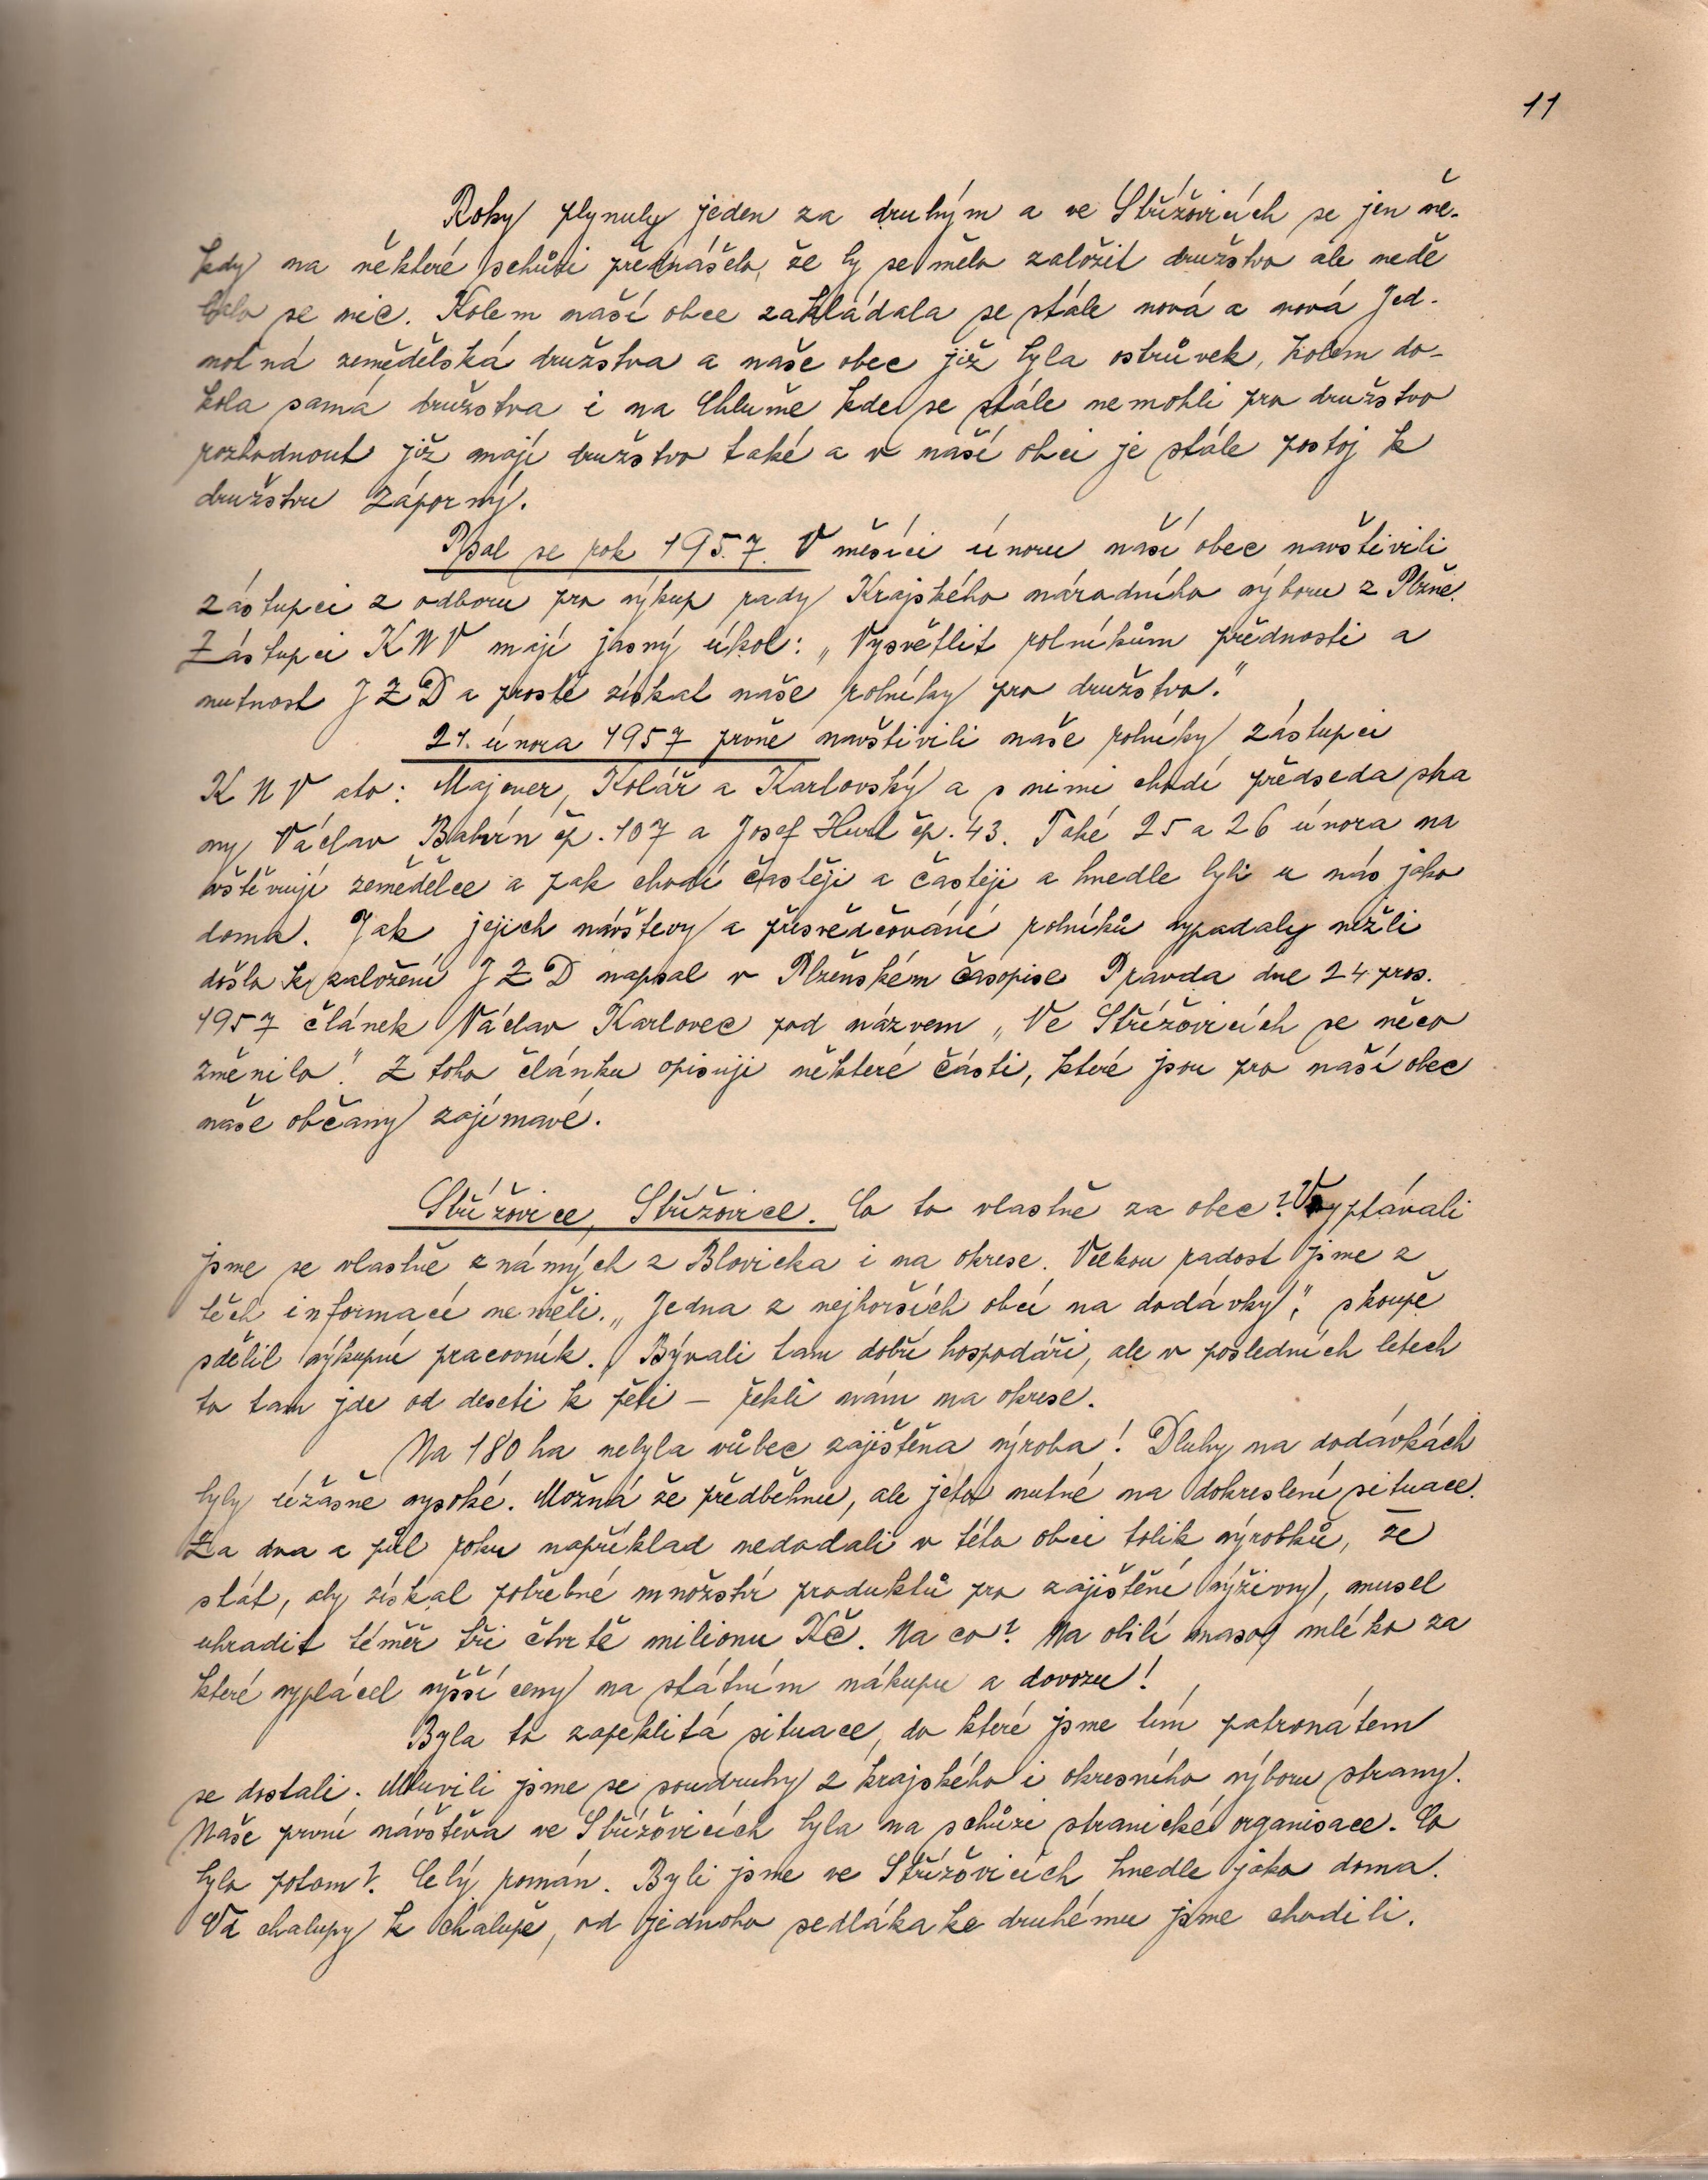 11
Roky plynuly jeden za druhým a ve Střížovicích se jen ně-
kdy na některé schůzi přednášelo, že by se mělo založit družstvo ale nedě
lalo se nic. Kolem naší obce zakládala se stále nová a nová Jed-
notná zemědělská družstva a naše obec již byla ostrůvek, kolem do-
kola samá družstva i na Chlumě kde se stále nemohli pro družstvo
rozhodnout již mají družstvo také a v naší obci je stále postoj k
družstvu záporný.
Psal se rok 1957. V měsíci únoru naší obec navštívili
zástupci z odboru pro výkup rady Krajského národního výboru z Plzně.
Zástupci KNV mají jasný úkol: „Vysvětlit rolníkům přednosti a
nutnost JZD a prostě získat naše rolníky pro družstvo."
21. února 1957 prvně navštívili naše rolníky zástupci
KNV ato: Majever, Kolář a Karlovský a s nimi chodí předseda stra
ny Václav Babín čp. 107 a Josef Hurt čp. 43. Také 25 a 26 února na
vštěvují zemědělce a pak chodí častěji a častěji a hnedle byli u nás jako
doma. Jak jejich návštevy a přesvědčování rolníků vypadaly nežli
došlo k založení JZD napsal v Plzeňském časopise Pravda dne 24 pros.
1957 článek Václav Karlovec pod názvem „Ve Střížovicích se něco
změnilo". Z toho článku opisuji některé části, které jsou pro naší obec
naše občany zajímavé.
Střížovice, Střížovice. Co to vlastně za obec? Vyptávali
jsme se vlastně známých z Blovicka i na okrese. Velkou radost jsme z
těch informací neměli. „Jedna z nejhorších obcí na dodávky", skoupě
sdělil výkupní pracovník. Bývali tam dobří hospodáři, ale v posledních letech
to tam jde od deseti k pěti – řekli nám na okrese.
Na 180 ha nebyla vůbec zajištěna výroba! Dluhy na dodávkách
byly úžasně vysoké. Možná že předběhnu, ale jeto nutné na dokreslení situace.
Za dva a půl roku například nedodali v této obci tolik výrobků, že
stát, aby získal potřebné množství produktů pro zajištění výživy, musel
uhradit téměř tři čtvrtě milionu Kč. Na co? Na obilí maso, mléko za
které vyplácel vyšší ceny na státním nákupu a dovozu!
Byla to zapeklitá situace, do které jsme tím patronátem
se dostali. Mluvili jsme se soudruhy z krajského i okresního výboru strany.
Naše první návštěva ve Střížovicích byla na schůzi stranické organisace. Co
bylo potom?. Celý román. Byli jsme ve Střížovicích hnedle jako doma.
Od chalupy k chalupě, od jednoho sedláka ke druhému jsme chodili.